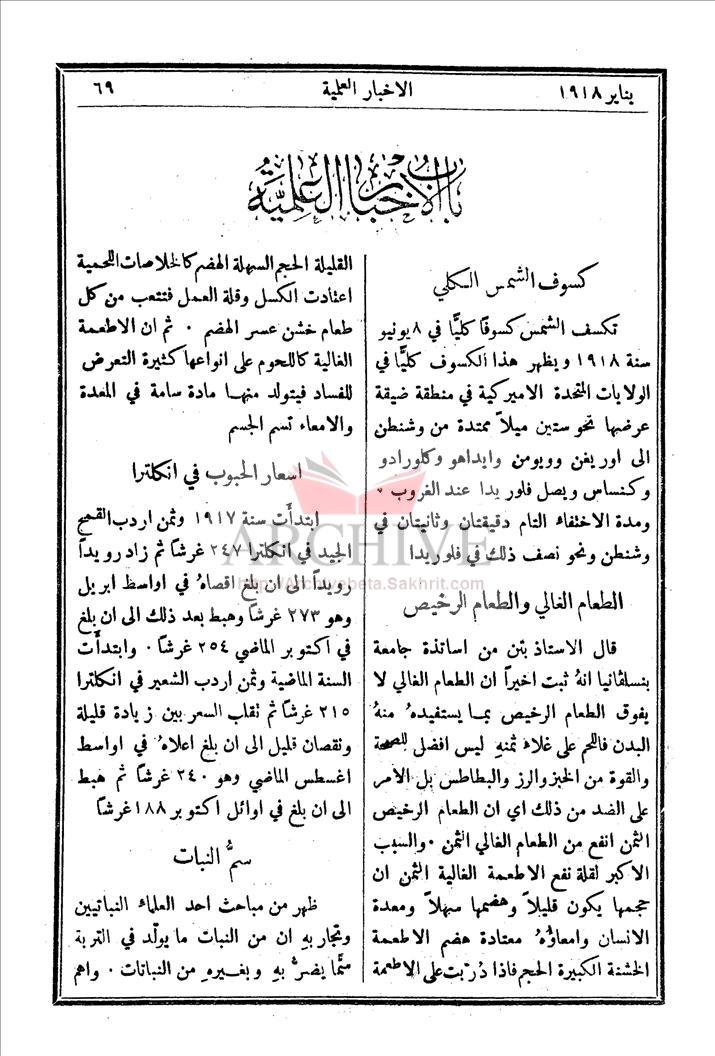 يناير ١٩١٨
الاخبار العلمية
٦٩
باب الاخبار العلمية
كسوف الشمس الكلي
تكسف الشمس كسوفًا كليًّا في ٨ يونيو
سنة ١٩١٨ ويظهر هذا الكسوف كليًّا في
الولايات المتحدة الاميركية في منطقة ضيقة
عرضها نحو ستين ميلاً ممتدة من وشنطن
الى اوريغن وويومن وايداهو وكلورادو
وكنساس ويصل فلوريدا عند الغروب ٠
ومدة الاختفاء التام دقيقتان وثانيتان في
وشنطن ونحو نصف ذلك في فلوريدا
الطعام الغالي والطعام الرخيص
قال الاستاذ بتن من اساتذة جامعة
بنسلڤانيا انهُ ثبت اخيراً ان الطعام الغالي لا
يفوق الطعام الرخيص بما يستفيدهُ منهُ
البدن فاللحم على غلاء ثمنهِ ليس افضل للصحة
والقوة من الخبز والرز والبطاطس بل الأمر
على الضد من ذلك اي ان الطعام الرخيص
الثمن انفع من الطعام الغالي الثمن ٠ والسبب
الاكبر لقلة نفع الاطعمة الغالية الثمن ان
حجمها يكون قليلاً وهضمها سهلاً ومعدة
الانسان وامعاؤهُ معتادة هضم الاطعمة
الخشنة الكبيرة الحجم فاذا دُرّبت على الاطعمة
القليلة الحجم السهلة الهضم كالخلاصات اللحمية
اعتادت الكسل وقلة العمل فتتعب من كل
طعام خشن عسر الهضم ٠ ثم ان الاطعمة
الغالية كاللحوم على انواعها كثيرة التعرض
للفساد فيتولد منها مادة سامة في المعدة
والامعاء تسم الجسم
اسعار الحبوب في انكلترا
ابتدأت سنة ١٩١٧ وثمن اردب القمح
الجيد في انكلترا ٢٤٧ غرشاً ثم زاد رويداً
رويداً الى ان بلغ اقصاهُ في اواسط ابريل
وهو ٢٧٣ غرشاً وهبط بعد ذلك الى ان بلغ
في اكتوبر الماضي ٢٥٤ غرشاً ٠ وابتدأت
السنة الماضية وثمن اردب الشعير في انكلترا
٢١٥ غرشاً ثم تقلب السعر بين زيادة قليلة
ونقصان قليل الى ان بلغ اعلاهُ في اواسط
اغسطس الماضي وهو ٢٤٠ غرشاً ثم هبط
الى ان بلغ في اوائل اكتوبر ١٨٨ غرشاً
سمُّ النبات
ظهر من مباحث احد العلماء النباتيين
وتجاربهِ ان من النبات ما يولّد في التربة
سمًّا يضرُّ بهِ وبغيرهِ من النباتات ٠ واهم
ARCHIVE
http://Archivebeta.Sakhrit.com